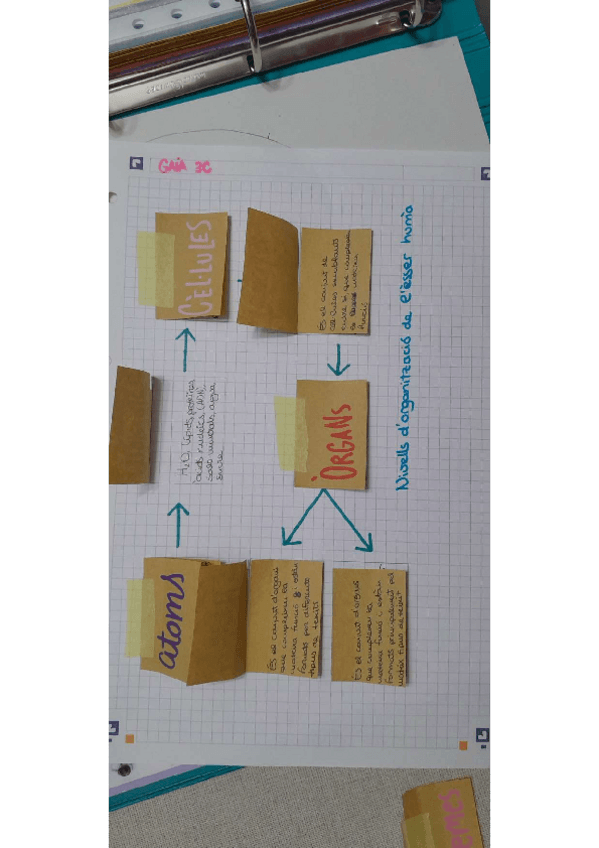 GAIA 3C
Nivells d'organització de l'ésser humà
àtoms
H2O, lípids, proteïnes,
àcids nucleics (ADN),
sals minerals, aigua
CÈL·LULES
És el conjunt de
cèl·lules semblants
entre si que compleixen
la mateixa
funció
ÒRGANS
És el conjunt d'òrgans
que compleixen la
mateixa funció i estan
formats per diferents
tipus de teixit
És el conjunt d'òrgans
que compleixen la
mateixa funció i estan
formats principalment pel
mateix tipus de teixit
emes